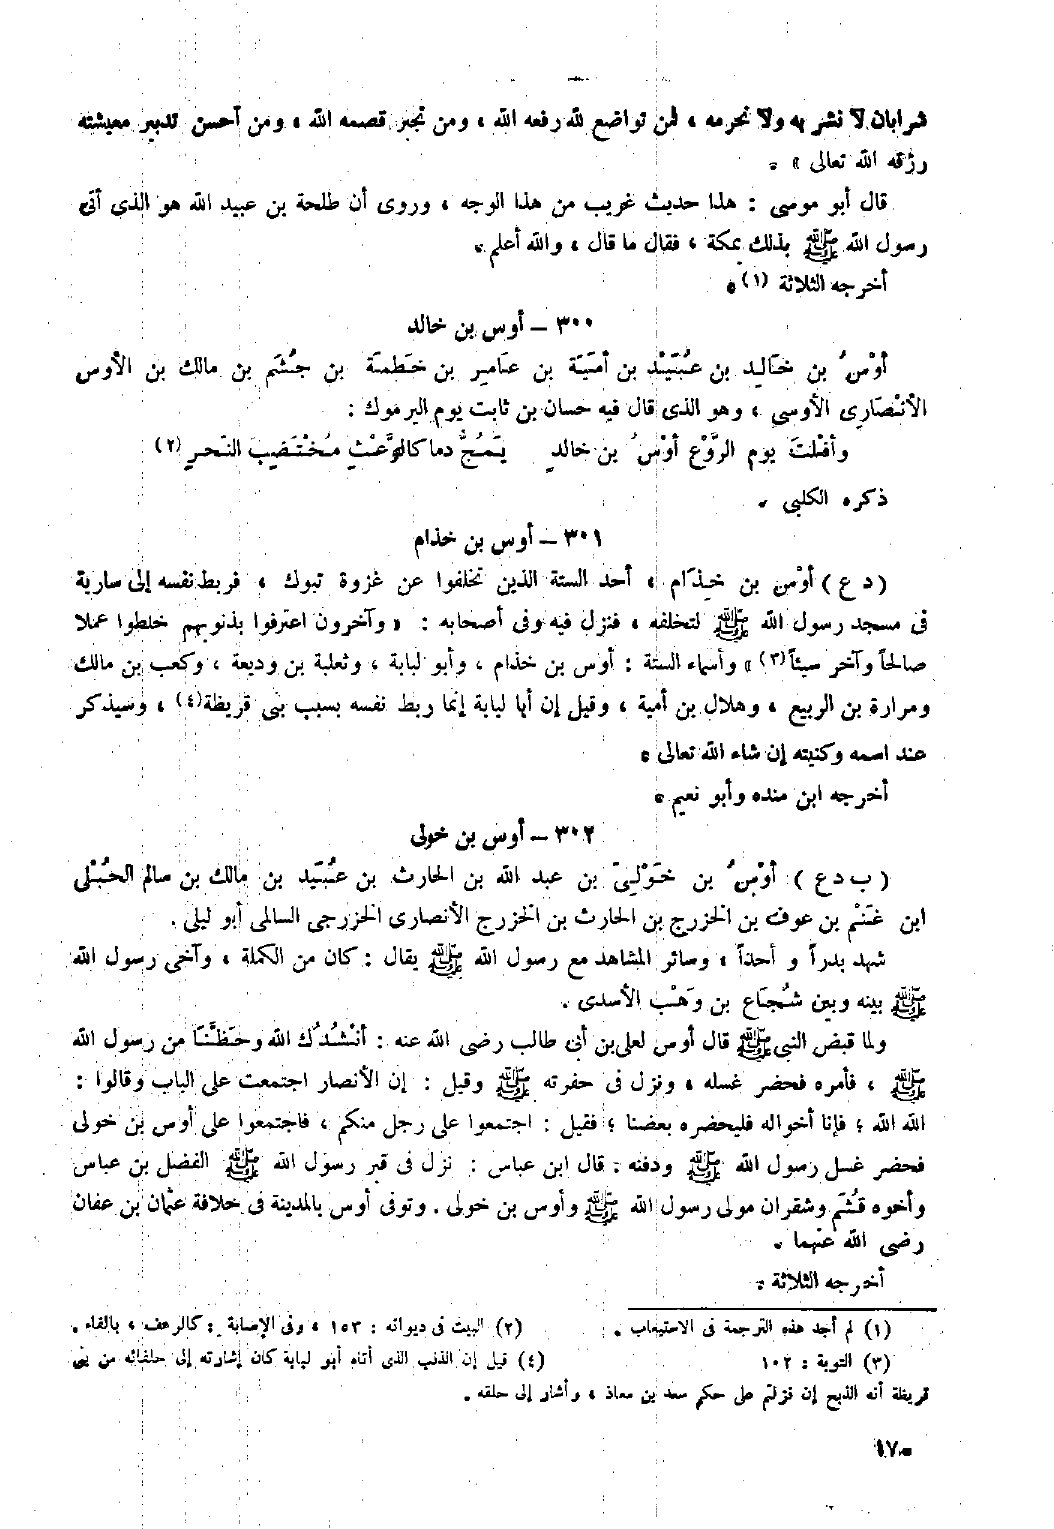 شرابان لا نشر به ولا نحرمه ، فمن تواضع لله رفعه الله ، ومن تجبر قصمه الله ، ومن أحسن تدبير معيشته
رزقه الله تعالى » .
قال أبو موسى : هذا حديث غريب من هذا الوجه ، وروى أن طلحة بن عبيد الله هو الذي أتى
رسول الله ﷺ بذلك بمكة ، فقال ما قال ، والله أعلم .
أخرجه الثلاثة (١) .
٣٠٠ – أوس بن خالد
أوْسُ بن خَالِد بن عُبَيْد بن أمَيَّة بن عَامِر بن خَطْمَة بن جُشَم بن مالك بن الأوس
الأنْصَارِى الأوسي ، وهو الذى قال فيه حسان بن ثابت يوم اليرموك :
وأفْلتَ يوم الرَّوْع أوْسُ بن خالدٍ يَمُجُّ دما كالوَعْثِ مُخْتَضِب النَّحر (٢)
ذكره الكلبى .
٣٠١ – أوس بن خذام
( د ع ) أوْس بن خِذَام ، أحد الستة الذين تخلفوا عن غزوة تبوك ، فربط نفسه إلى سارية
فى مسجد رسول الله ﷺ لتخلفه ، فنزل فيه وفى أصحابه : « وآخرون اعترفوا بذنوبهم خلطوا عملا
صالحاً وآخر سيئاً(٣) » وأسماء الستة : أوس بن خذام ، وأبو لبابة ، وثعلبة بن وديعة ، وكعب بن مالك
ومرارة بن الربيع ، وهلال بن أمية ، وقيل إن أبا لبابة إنما ربط نفسه بسبب بنى قريظة(٤) ، وسيذكر
عند اسمه وكنيته إن شاء الله تعالى .
أخرجه ابن منده وأبو نعيم .
٣٠٢ – أوس بن خولى
( ب د ع ) أوْسُ بن خَوْلِىّ بن عبد الله بن الحارث بن عُبَيد بن مالك بن سالم الحُبْلى
ابن غَنْم بن عوف بن الخزرج بن الحارث بن الخزرج الأنصارى الخزرجى السالمى أبو ليلى .
شهد بدراً و أحداً ، وسائر المشاهد مع رسول الله ﷺ يقال : كان من الكملة ، وآخى رسول الله
ﷺ بينه وبين شُجَاع بن وَهْب الأسدى .
ولما قبض النبى ﷺ قال أوس لعلى بن أبى طالب رضى الله عنه : أنْشُدُك الله وحَظَّنَا من رسول الله
ﷺ ، فأمره فحضر غسله ، ونزل فى حفرته ﷺ وقيل : إن الأنصار اجتمعت على الباب وقالوا :
الله الله ؛ فإنا أخواله فليحضره بعضنا ؛ فقيل : اجتمعوا على رجل منكم ، فاجتمعوا على أوس بن خولى
فحضر غسل رسول الله ﷺ ودفنه . قال ابن عباس : نزل فى قبر رسول الله ﷺ الفضل بن عباس
وأخوه قُثَم وشقران مولى رسول الله ﷺ وأوس بن خولى . وتوفى أوس بالمدينة فى خلافة عثمان بن عفان
رضى الله عنهما .
أخرجه الثلاثة .
(١) لم أجد هذه الترجمة فى الاستيعاب .
(٢) البيت فى ديوانه : ١٥٣ ، وفى الإصابة : كالرعف ، بالفاء .
(٣) التوبة : ١٠٢
(٤) قيل إن الذنب الذى أتاه أبو لبابة كان إشارته إلى حلفائه من بنى
قريظة أنه الذبح إن نزلتم على حكم سعد بن معاذ ، وأشار إلى حلقه .
١٧٠